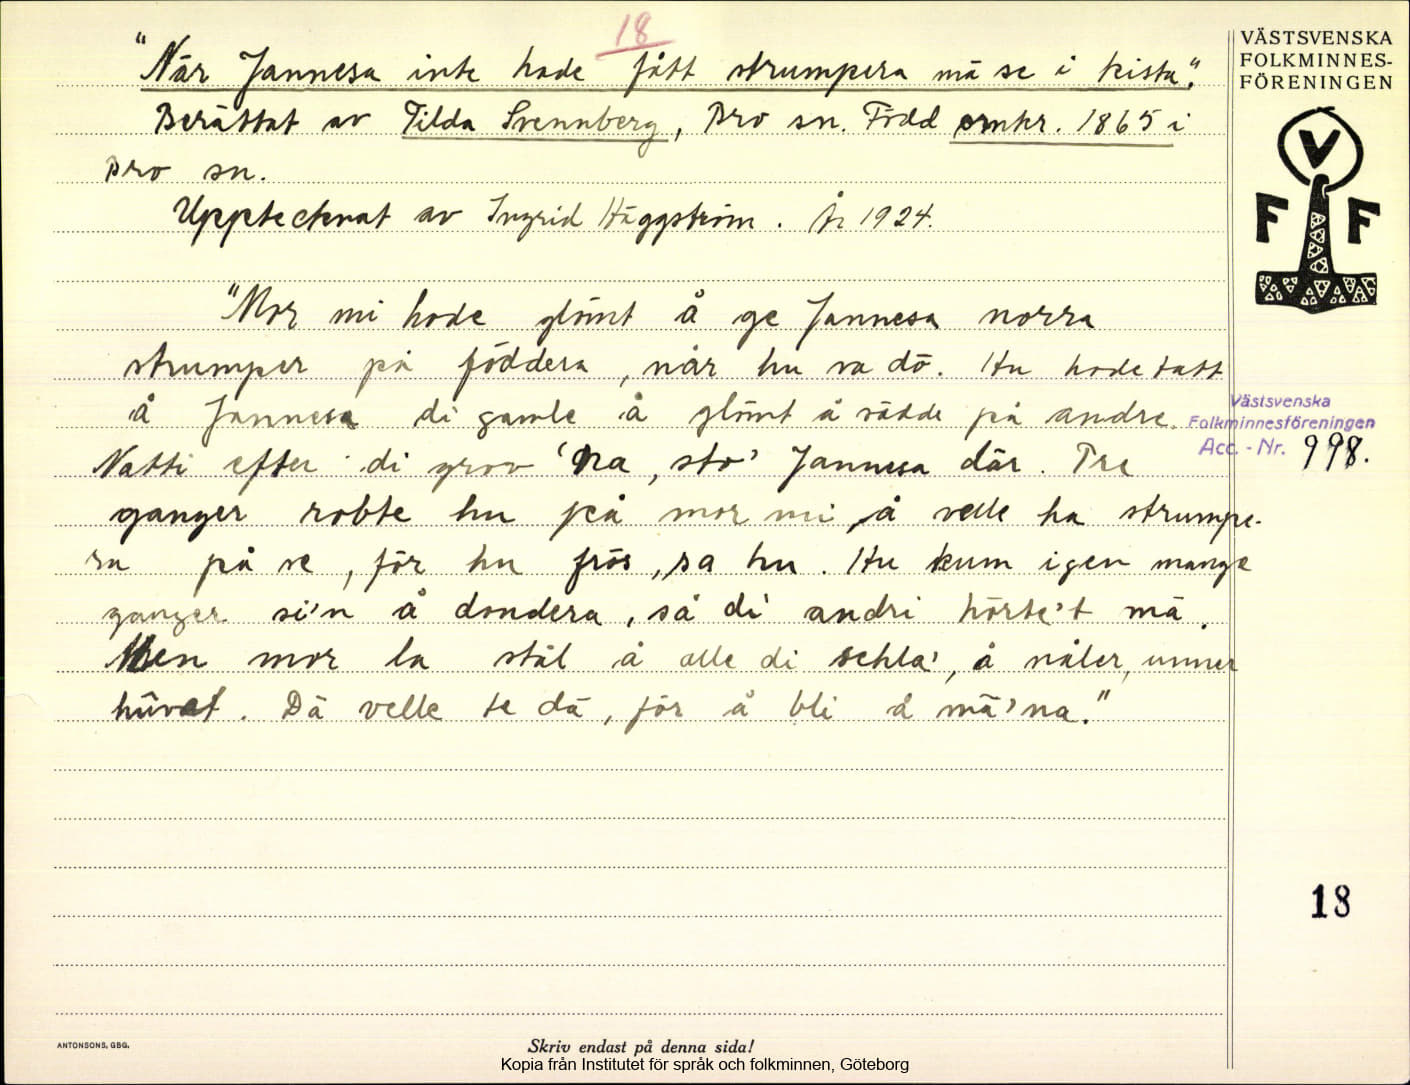 18
"När Jannesa inte hade fått strumpera mä se i kista".
Berättat av Tilda Svennberg, Bro sn. Född omkr. 1865 i
Bro sn.
Upptecknat av Ingrid Häggström. År 1924.
"Mor mi hade glömt å ge Jannesa norra
strumper på föddera, när hu va dö. Hu hade tatt
å Jannesa di gamle å glömt å sädde på andre.
Natti efter di grov 'na, sto' Jannesa där. Tre
ganger robte hu på mor mi, å velle ha strumpe-
ra på se, för hu frös, sa hu. Hu kum igen mange
ganger si'n å dondera, så di andri hörte't mä.
Men mor la stål å alle di schla', å nåler, unner
hûvet. Dä velle te dä, för å bli å mä'na."
VÄSTSVENSKA
FOLKMINNES-
FÖRENINGEN
V
F F
Västsvenska
Folkminnesföreningen
Acc. - Nr. 998.
18
ANTONSONS, GBG.
Skriv endast på denna sida!
Kopia från Institutet för språk och folkminnen, Göteborg